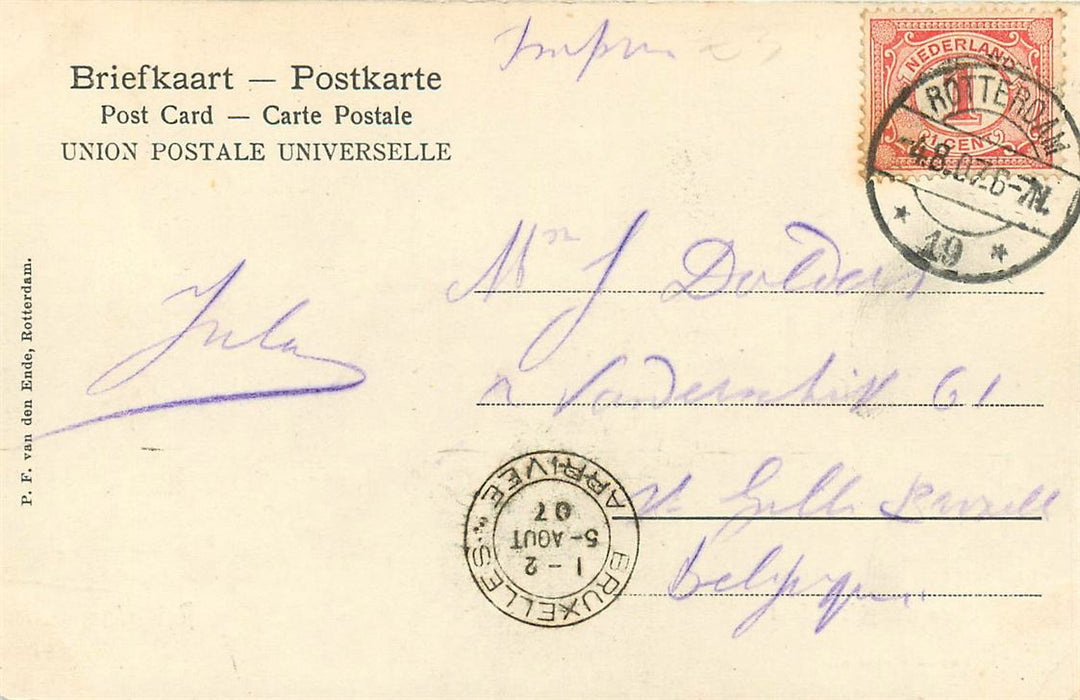 Briefkaart — Postkarte
Post Card — Carte Postale
UNION POSTALE UNIVERSELLE
NEDERLAND
1
CENT
ROTTERDAM
-4.8.07.6-7N.
* 19 *
P. F. van den Ende, Rotterdam.
Mr J
61
St Gilles
Belgique
BRUXELLES
ARRIVEE
1-2
5-AOUT
07